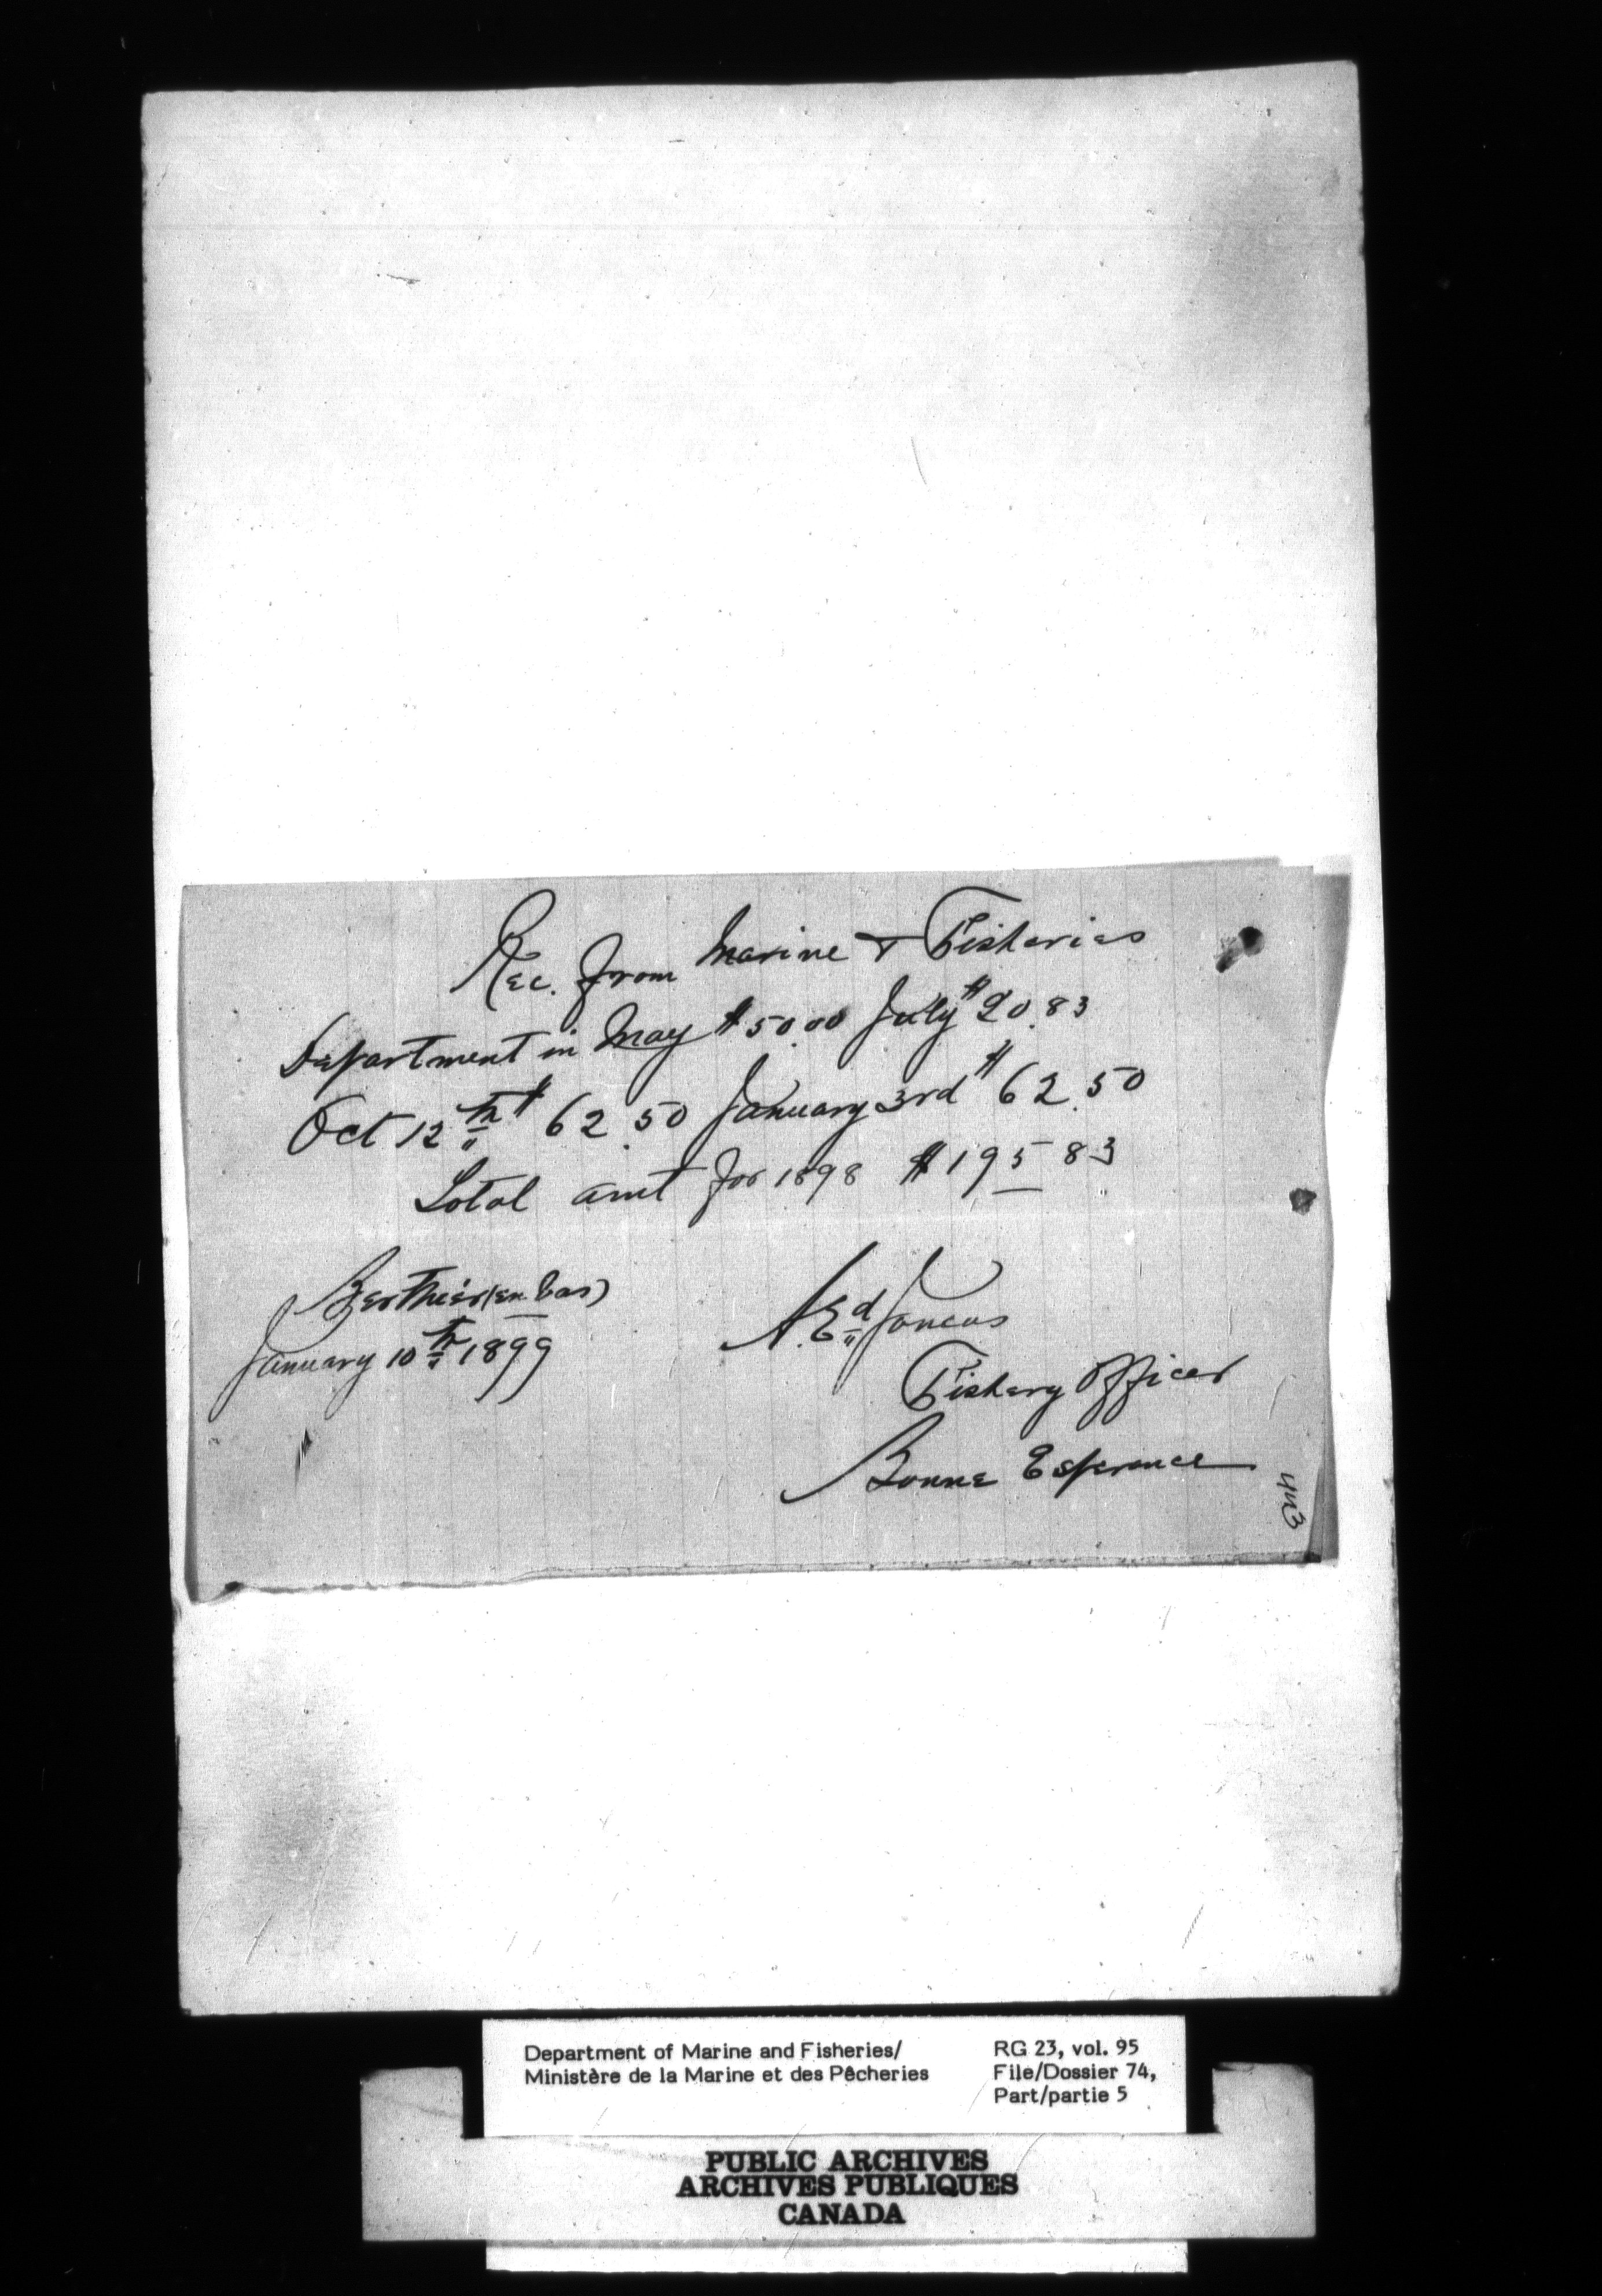 Rec. from Marine & Fisheries
Department in May $50.00 July $20.83
Oct 12th $62.50 January 3rd $62.50
Total amt for 1898 $195 83
Berthier (en bas)
January 10th 1899
A. Ed Joncas
Fishery Officer
Bonne Esperance
443
Department of Marine and Fisheries/
Ministère de la Marine et des Pêcheries
RG 23, vol. 95
File/Dossier 74,
Part/partie 5
PUBLIC ARCHIVES
ARCHIVES PUBLIQUES
CANADA